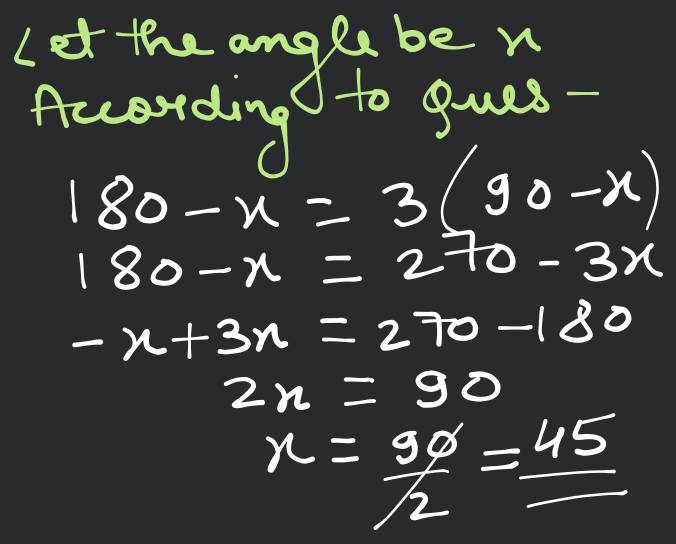 Let the angle be x
According to Ques –
180 – x = 3(90 – x)
180 – x = 270 – 3x
– x + 3x = 270 – 180
2x = 90
x = 90/2 = 45